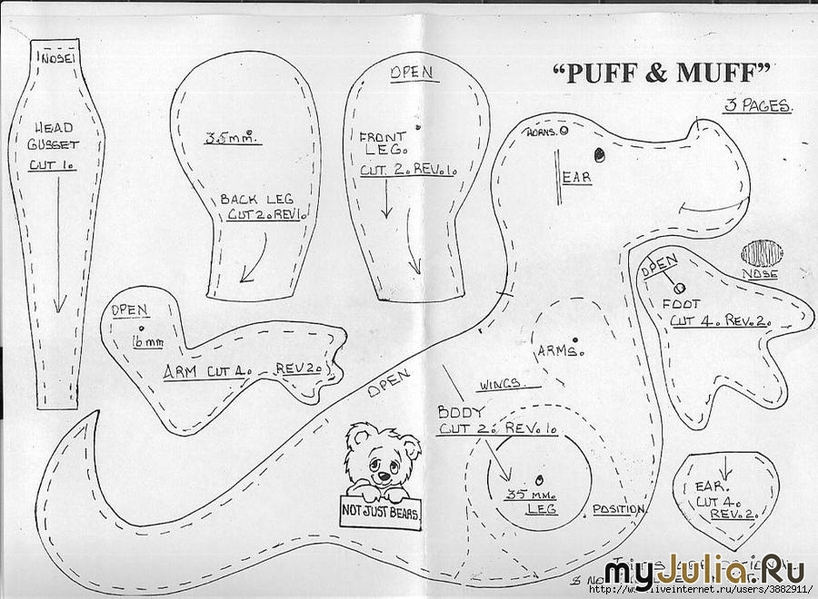 "PUFF & MUFF"
3 PAGES.
NOSE
HEAD
GUSSET
CUT 1.
35mm.
BACK LEG
CUT 2. REV 1.
OPEN
FRONT
LEG.
CUT. 2. REV. 1.
HORNS.
EAR
NOSE
OPEN
FOOT
CUT 4. REV. 2.
OPEN
16mm
ARM CUT 4. REV 2.
ARMS.
OPEN
WINGS.
BODY
CUT 2. REV. 1.
35 MM.
LEG
POSITION.
EAR.
CUT 4.
REV. 2.
NOT JUST BEARS.
myJulia.Ru